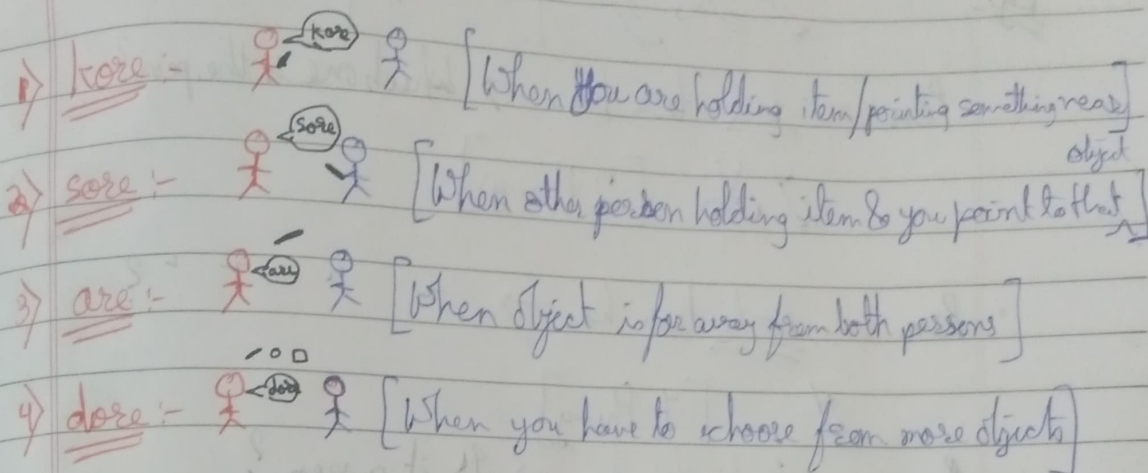 1) kore :- kore [When you are holding item/pointing something near]
2) sore :- sore [When other person holding item & you point to that object]
3) are :- are [When object is far away from both persons]
4) dore :- dore [When you have to choose from more object]